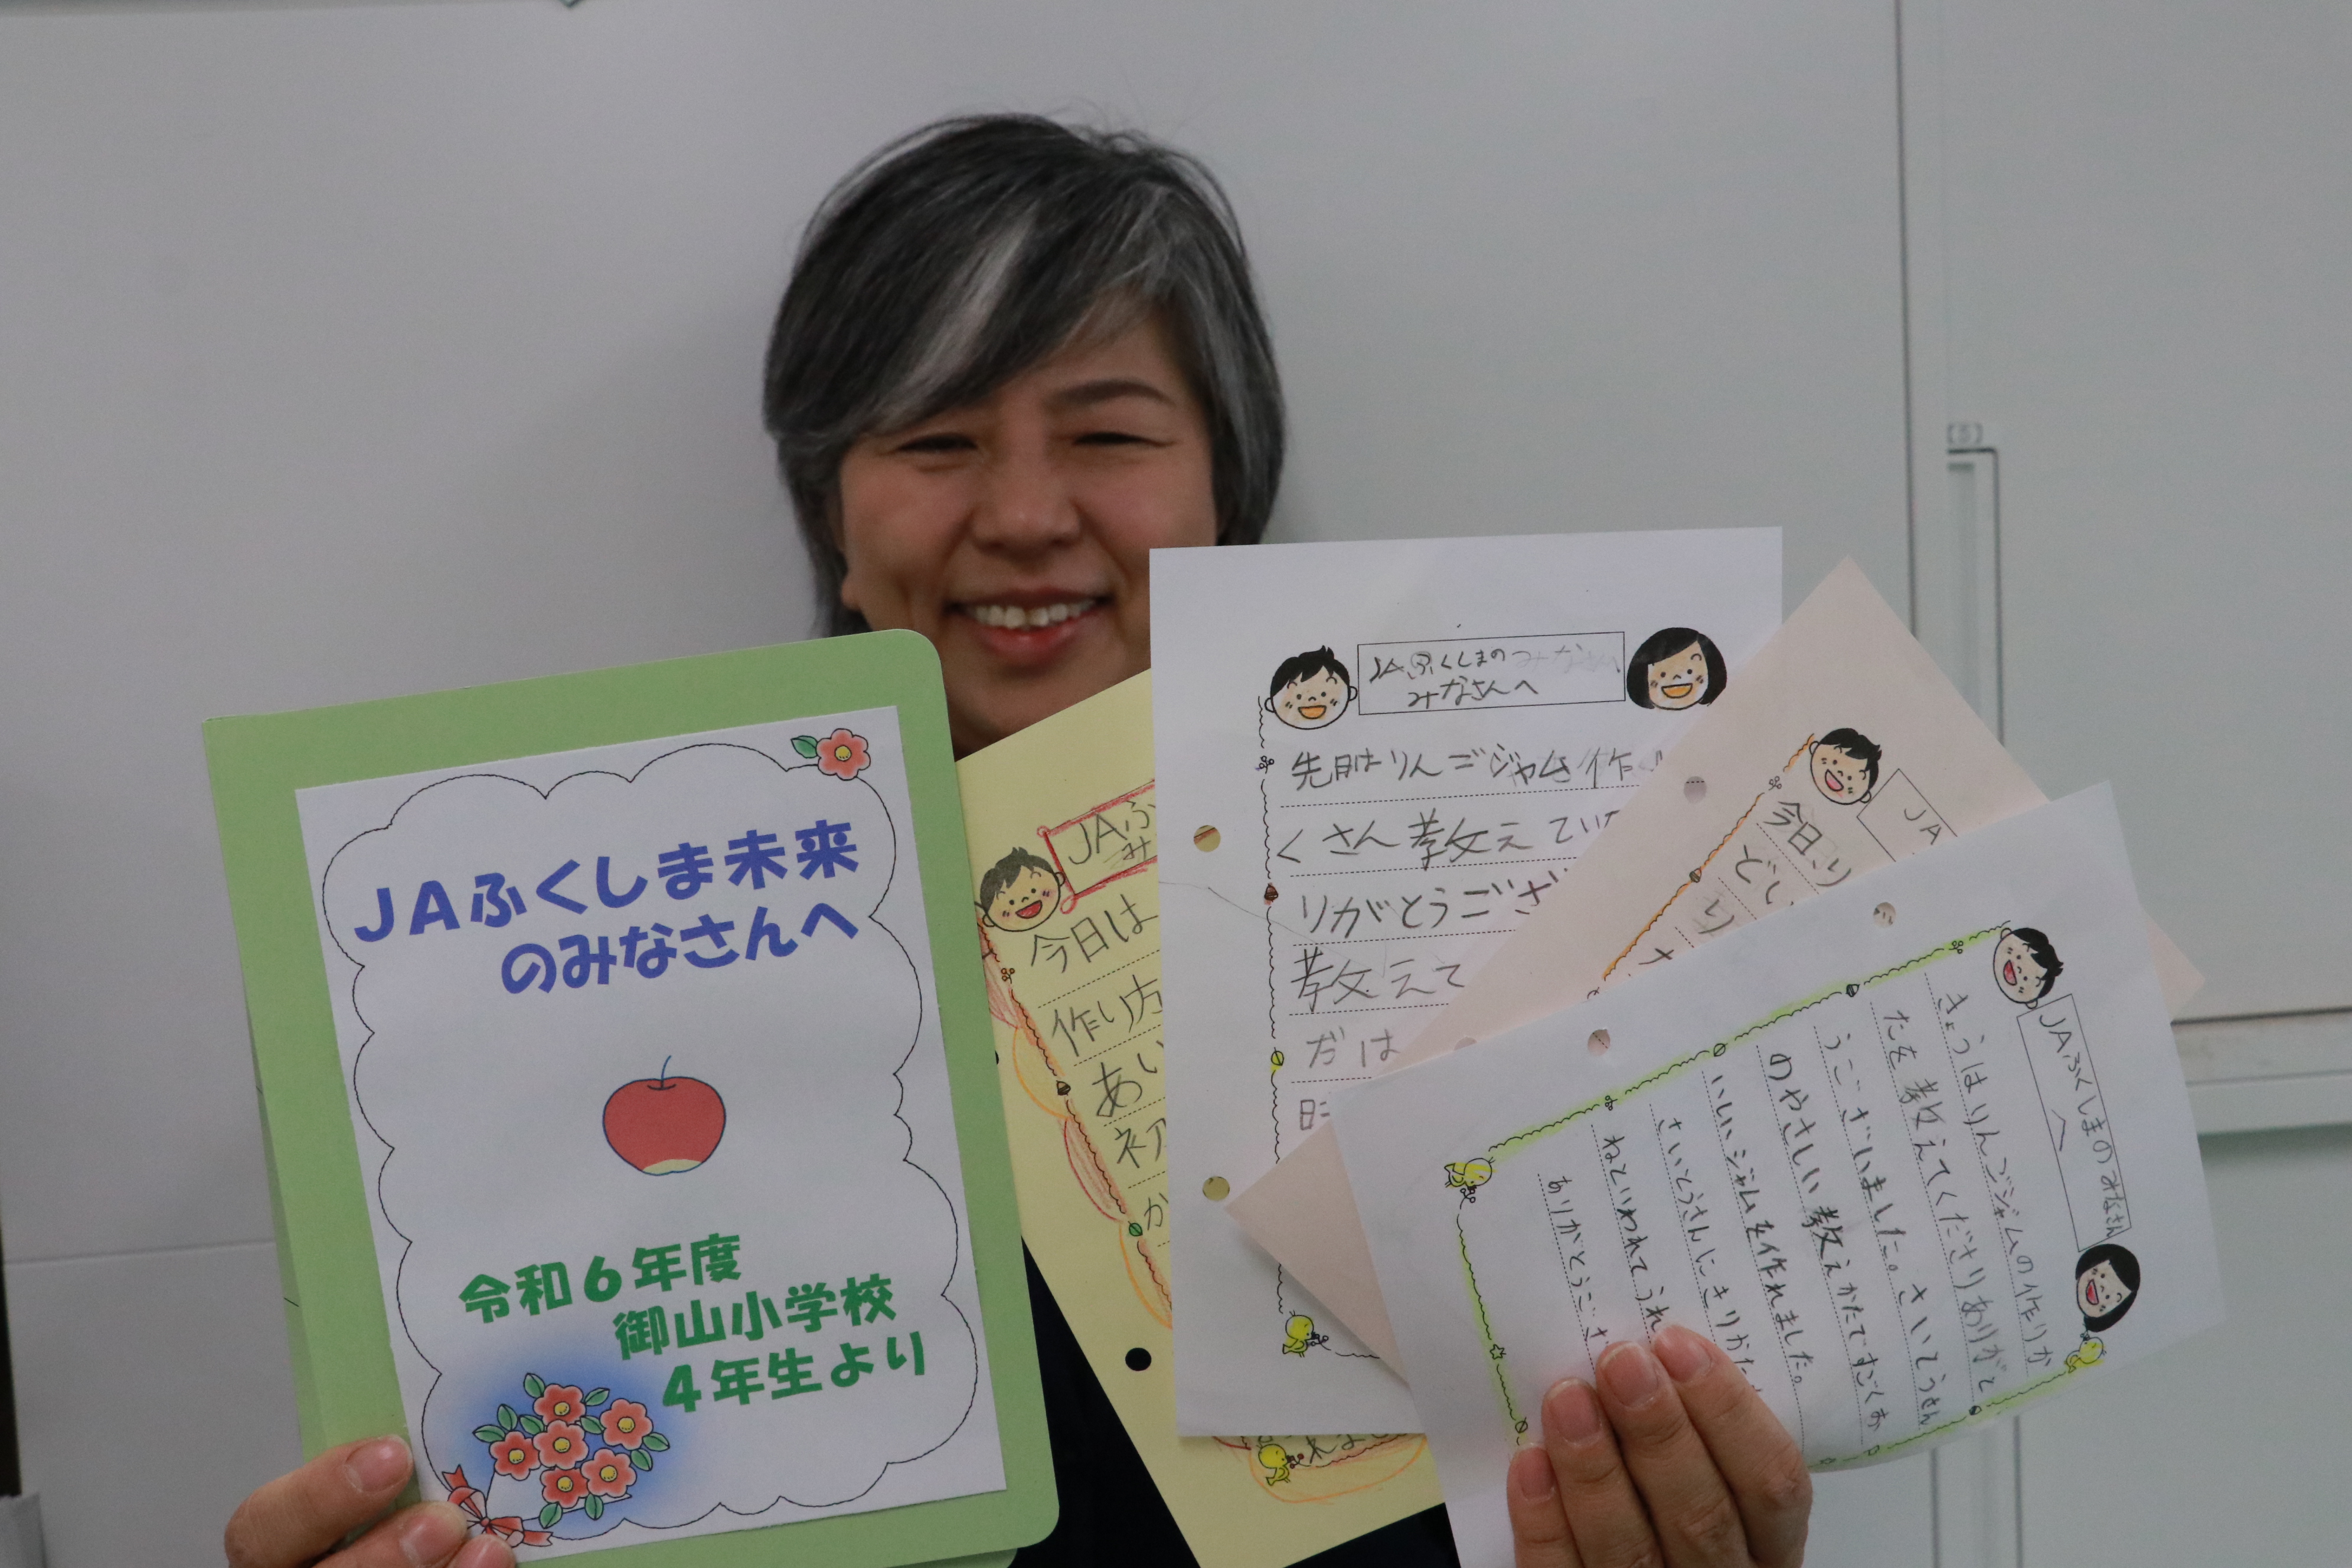 JAふくしま未来
のみなさんへ
令和6年度
御山小学校
4年生より
JAふ
み
今日は
作り方
あい
初
か
JAふくしまの
みなさんへ
先日はりんごジャム作
くさん教えてい
りがとうござ
教えて
だは
JA
今日り
JAふくしまのみなさん
へ
きょうはりんごジャムの作りか
たを教えてくださりありがと
うございました。さいとうさん
のやさしい教えかたですごくお
いしいジャムを作れました。
さいとうさんにきりかた
ねといわれてうれ
ありがとうござ